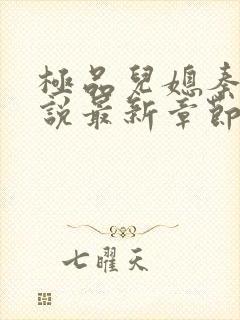 極品兒媳秦
說最新章節
七曜天